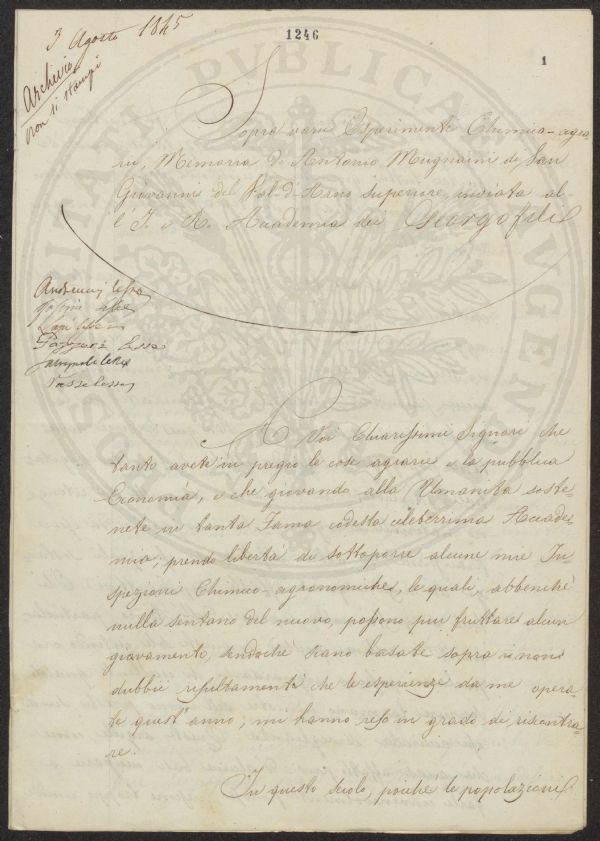 3 Agosto 1845
Archivio
non si stampi
1246
1
Sopra varii Esperimenti Chimico-agra-
rii, Memoria di Antonio Mugnaini di San
Giovanni del Val-d'Arno Superiore, inviata al-
l'I. e R. Accademia dei Georgofili
A Voi Chiarissimi Signori che
tanto avete in pregio le cose agrarie e la pubblica
Economia, e che giovando alla Umanità soste-
nete in tanta Fama codesta celeberrima Accade-
mia, prendo libertà di sottoporre alcune mie In-
spezioni Chimico-agronomiche, le quali, abbenchè
nulla sentano del nuovo, possono pur fruttare alcun
giovamento, sendochè siano basate sopra i non
dubbii resultamenti che le esperienze da me opera-
te quest'anno, mi hanno reso in grado di riscontra-
re.
In questo secolo, poichè le popolazioni